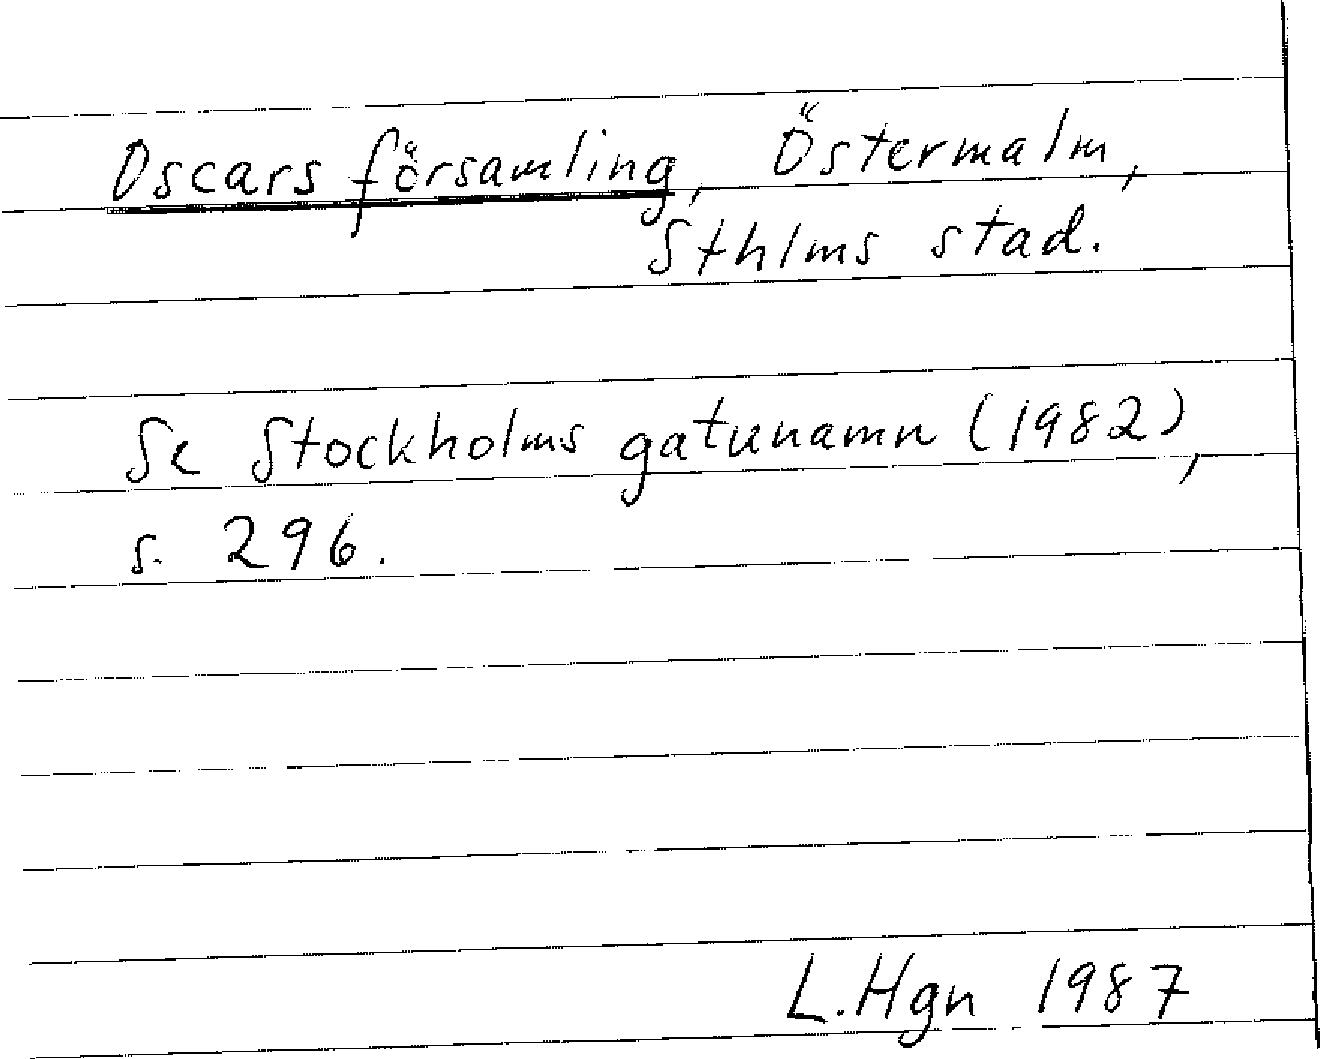 Oscars församling, Östermalm,
Sthlms stad.
Se Stockholms gatunamn (1982),
s. 296.
L.Hgn 1987